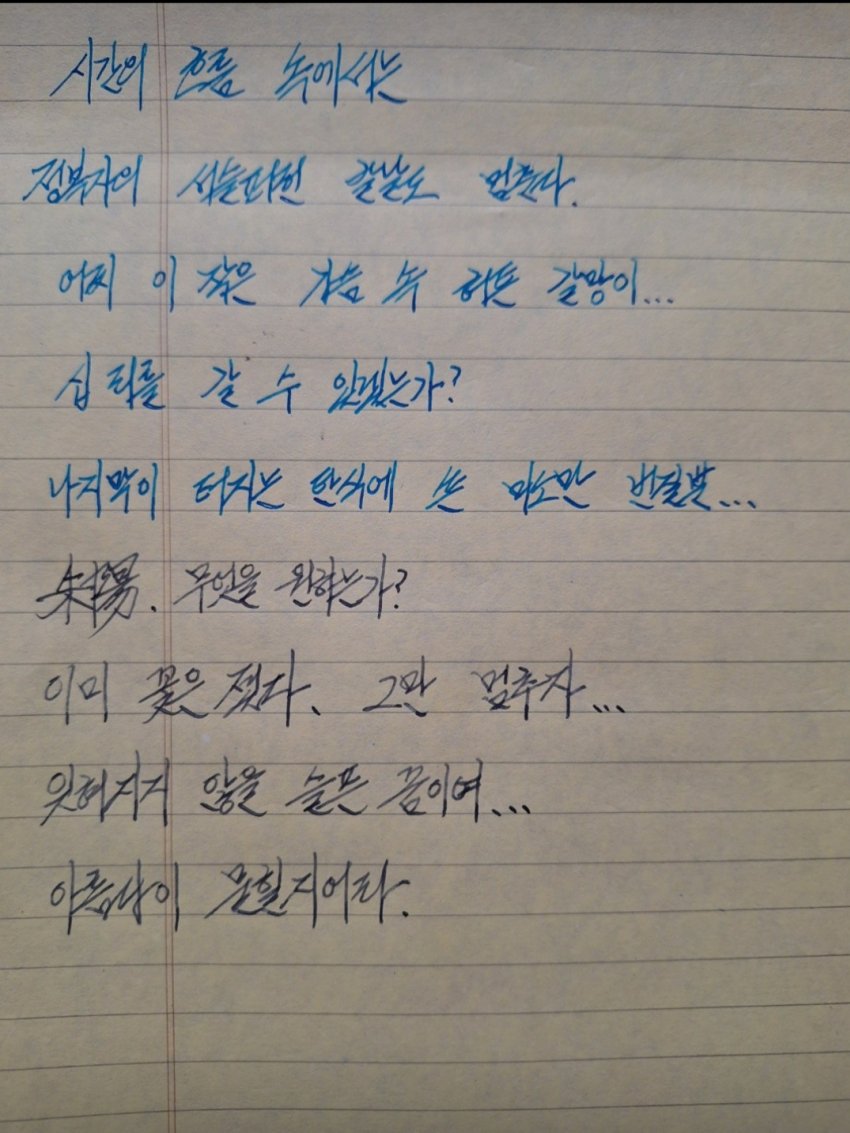 시간의 흐름 속에서는
정복자의 서늘퍼런 칼날도 멈춘다.
어찌 이 작은 가슴 속 허튼 갈망이...
십 리를 갈 수 있겠는가?
나지막이 터지는 탄식에 쓴 미소만 번질뿐...
무엇을 원하는가?
이미 꽃은 졌다. 그만 멈추자...
잊혀지지 않을 슬픈 꿈이여...
아름다이 묻힐지어다.